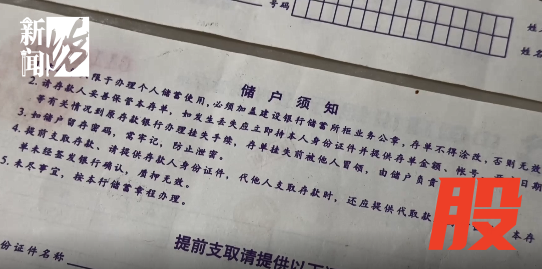 新闻坊
号码
储户须知
限于办理个人储蓄使用,必须加盖建设银行储蓄所柜业务公章,存单不得涂改,否则无效
2.请存款人妥善保管本存单,如发生丢失应立即持本人身份证件并提供存单金额、帐号、
日期
等有关情况到原存款银行办理挂失手续,存单挂失前被他人冒领,由储户负责
3.如储户留存密码,需牢记,防止泄密。
4.提前支取存款,请提供存款人身份证件,代他人支取存款时,还应提供代取款
本存
单未经签发银行确认,质押无效。
5.未尽事宜,按本行储蓄章程办理。
股
提前支取请提供以下
份证件名称